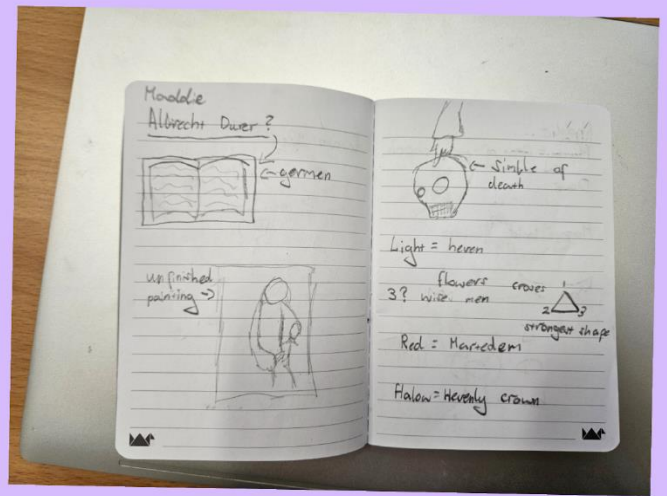 Maddie
Albrecht Durer?
← germen
unfinished
painting →
← Simble of
death
Light = heven
flowers
3? wise men
croses
1
2 3
strongest shape
Red = Martedem
Halow = Hevenly crown